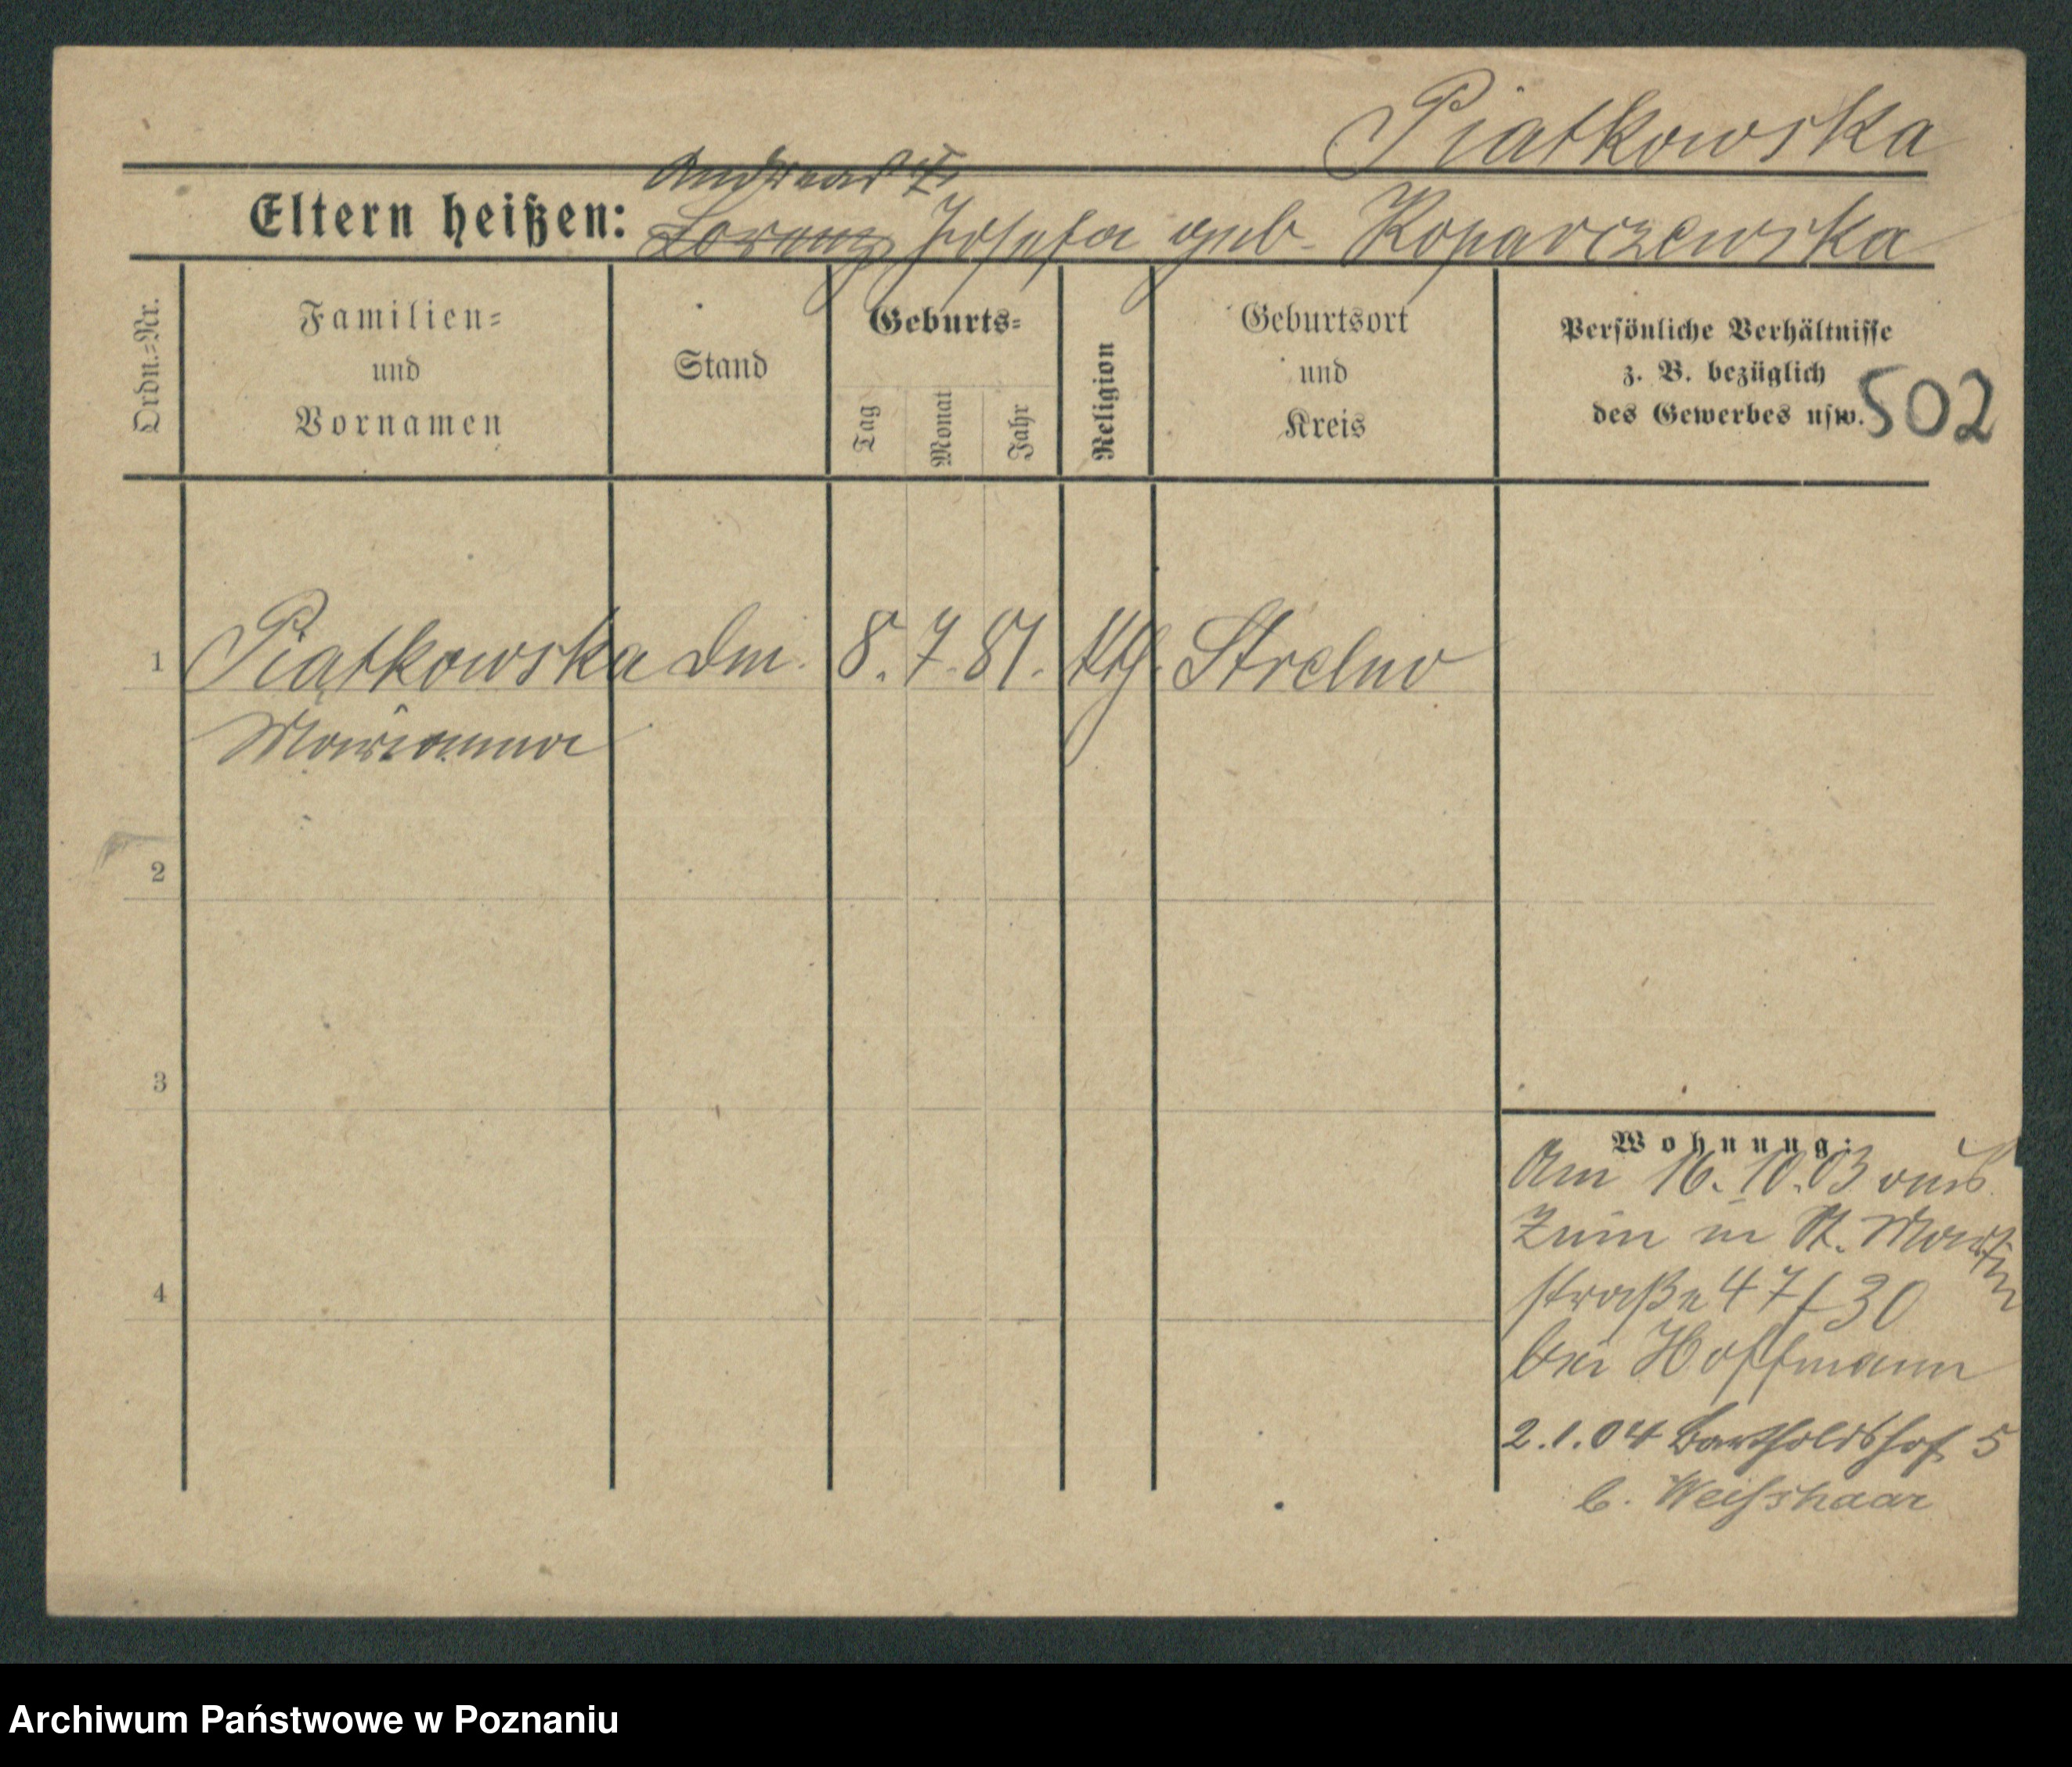 Piatkowska
Andreas
Eltern heißen: Lorenz Josefa geb. Koparczewska
Ordn.=Nr.
Familien=
und
Vornamen
Stand
Geburts=
Tag
Monat
Jahr
Religion
Geburtsort
und
Kreis
Persönliche Verhältnisse
z. B. bezüglich
des Gewerbes usw.
502
1 Piątkowska 8. 7. 81. kth. Strelno
Marianna
2
3
4
Wohnung:
Am 16. 10. 03 aus
Znin in St. Martin
straße 47/30
bei Hoffmann
2.1.04 Bartholdshof 5
b. Weißhaar
Archiwum Państwowe w Poznaniu